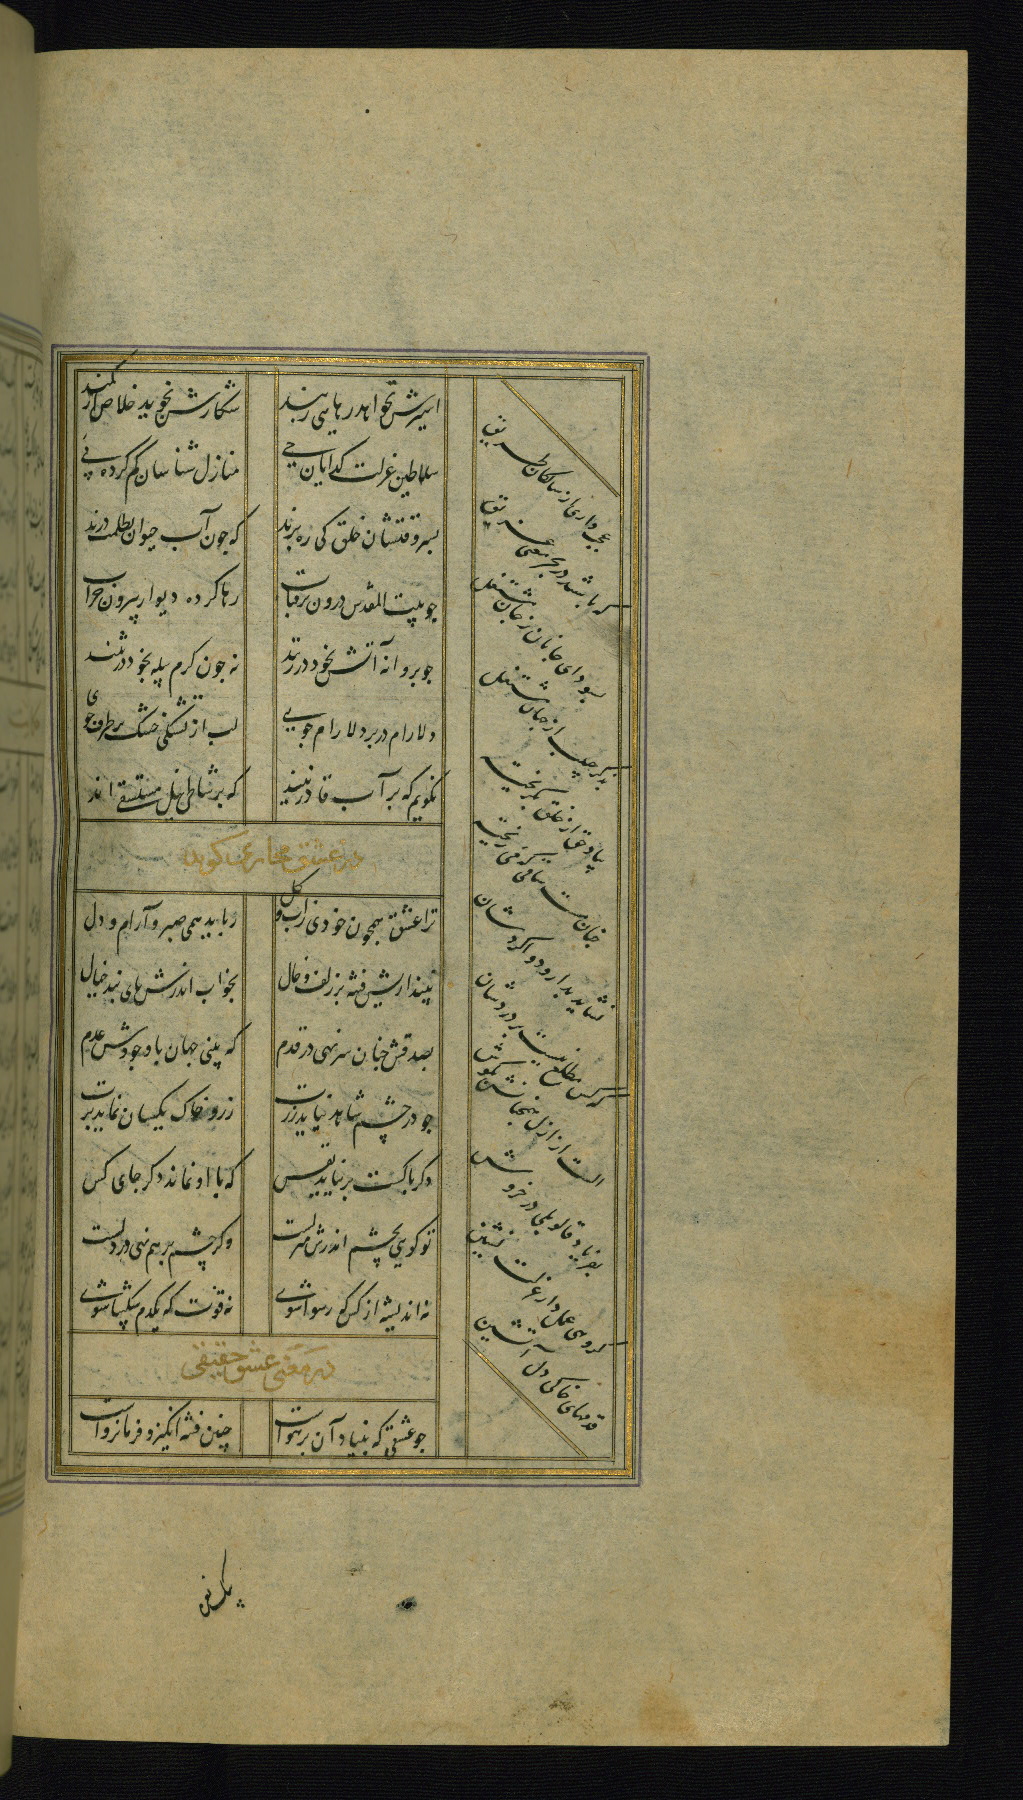 اسیرش نخواهد رهایی ز بند
شکارش نجوید خلاص از کمند
سلاطین عزلت کدایان حی
منازل شناسان کم کرده پی
بسر وقتشان خلق کی ره برند
که چون آب حیوان بظلمت درند
چو بیت المقدس درون پر قباب
رها کرده دیوار بیرون خراب
چو پروانه آتش بخود در زنند
نه چون کرم پیله بخود در تنند
دلارام در بر دلارام جوی
لب از تشنکی خشک بر طرف جوی
نکویم که بر آب قادر نیند
که بر شاطی نیل مستسقی اند
در عشق مجازی کوید
ترا عشق همچون خودی ز آب و کل
رباید همی صبر و آرام و دل
ببیداریش فتنه بر زلف و خال
بخواب اندرش پای بند خیال
بصدقش چنان سر نهی در قدم
که بینی جهان با وجودش عدم
چو در چشم شاهد نیاید زرت
زر و خاک یکسان نماید برت
دکر با کست بر نیاید نفس
که با او نماند دکر جای کس
تو کویی بچشم اندرش منزلست
وکر چشم بر هم نهی در دلست
نه اندیشه از کس که رسوا شوی
نه قوت که یکدم شکیبا شوی
در معنی عشق حقیقی
چو عشقی که بنیاد آن بر هواست
چنین فتنه انکیز و فرمانرواست
عجب داری از سالکان طریق
که باشند در بحر معنی غریق
بسودای جانان ز جان مشتغل
بذکر حبیب از جهان مشتغل
بیاد حق از خلق بکریخته
چنان مست ساقی که می ریخته
نشاید بدارو دوا کردشان
که کس مطلع نیست بر دردشان
الست از ازل همچنانشان بکوش
بفریاد قالوا بلی در خروش
کروهی عمل دار عزلت نشین
قدمهای خاکی دل آتشین